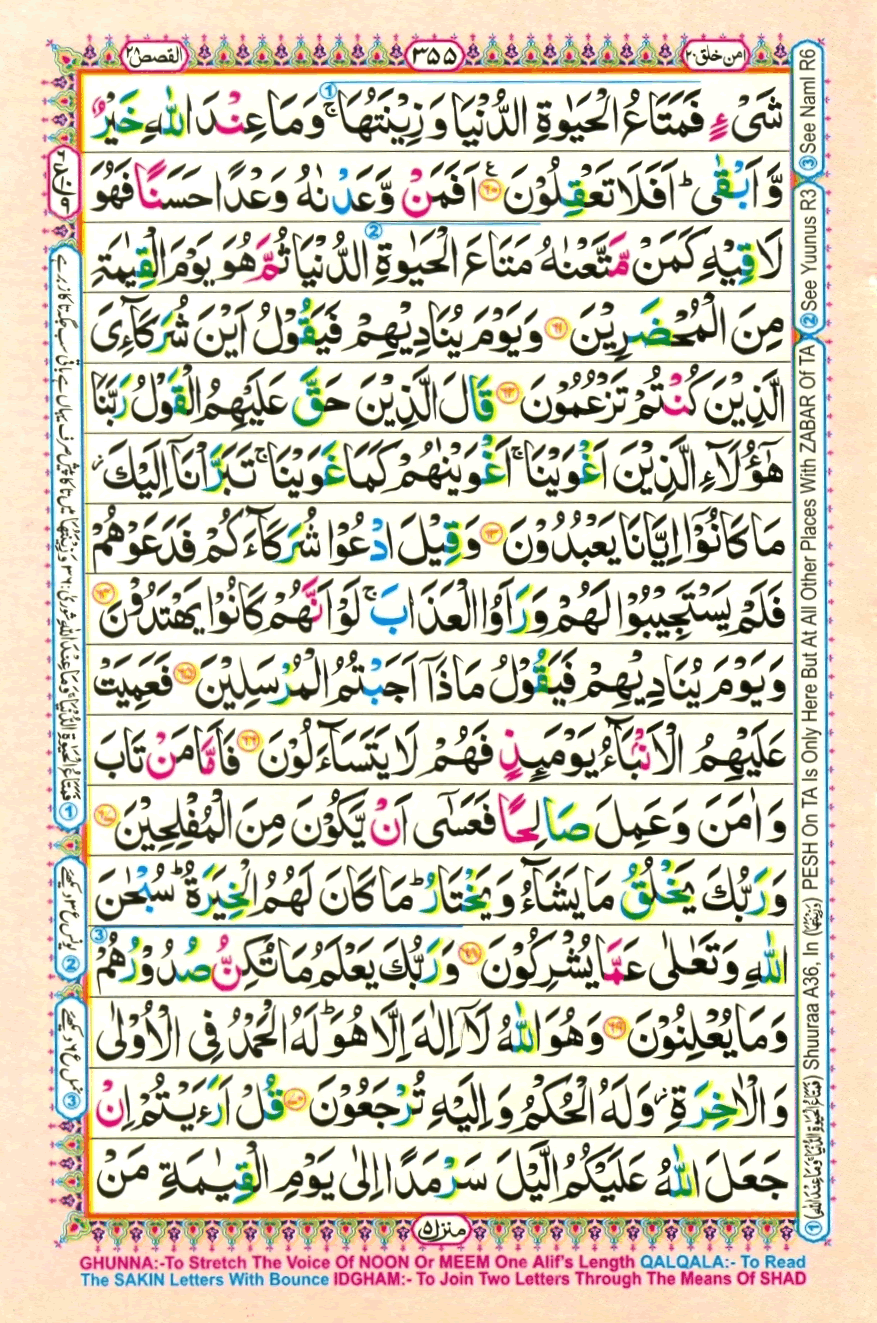 القصص ٢٨
٣٥٥
امن خلق ٢٠
شَیۡءٍ فَمَتَاعُ الۡحَیٰوةِ الدُّنۡیَا وَ زِیۡنَتُهَا ۚ وَ مَا عِنۡدَ اللّٰهِ خَیۡرٌ
وَّ اَبۡقٰی ؕ اَفَلَا تَعۡقِلُوۡنَ ﴿۶۰﴾ اَفَمَنۡ وَّعَدۡنٰهُ وَعۡدًا حَسَنًا فَهُوَ
لَاقِیۡهِ کَمَنۡ مَّتَّعۡنٰهُ مَتَاعَ الۡحَیٰوةِ الدُّنۡیَا ثُمَّ هُوَ یَوۡمَ الۡقِیٰمَةِ
مِنَ الۡمُحۡضَرِیۡنَ ﴿۶۱﴾ وَ یَوۡمَ یُنَادِیۡهِمۡ فَیَقُوۡلُ اَیۡنَ شُرَکَآءِیَ
الَّذِیۡنَ کُنۡتُمۡ تَزۡعُمُوۡنَ ﴿۶۲﴾ قَالَ الَّذِیۡنَ حَقَّ عَلَیۡهِمُ الۡقَوۡلُ رَبَّنَا
هٰۤؤُلَآءِ الَّذِیۡنَ اَغۡوَیۡنَا ۚ اَغۡوَیۡنٰهُمۡ کَمَا غَوَیۡنَا ۚ تَبَرَّاۡنَاۤ اِلَیۡکَ ۫
مَا کَانُوۡۤا اِیَّانَا یَعۡبُدُوۡنَ ﴿۶۳﴾ وَ قِیۡلَ ادۡعُوۡا شُرَکَآءَکُمۡ فَدَعَوۡهُمۡ
فَلَمۡ یَسۡتَجِیۡبُوۡا لَهُمۡ وَ رَاَوُا الۡعَذَابَ ۚ لَوۡ اَنَّهُمۡ کَانُوۡا یَهۡتَدُوۡنَ ﴿۶۴﴾
وَ یَوۡمَ یُنَادِیۡهِمۡ فَیَقُوۡلُ مَاذَاۤ اَجَبۡتُمُ الۡمُرۡسَلِیۡنَ ﴿۶۵﴾ فَعَمِیَتۡ
عَلَیۡهِمُ الۡاَنۡۢبَآءُ یَوۡمَئِذٍ فَهُمۡ لَا یَتَسَآءَلُوۡنَ ﴿۶۶﴾ فَاَمَّا مَنۡ تَابَ
وَ اٰمَنَ وَ عَمِلَ صَالِحًا فَعَسٰۤی اَنۡ یَّکُوۡنَ مِنَ الۡمُفۡلِحِیۡنَ ﴿۶۷﴾
وَ رَبُّکَ یَخۡلُقُ مَا یَشَآءُ وَ یَخۡتَارُ ؕ مَا کَانَ لَهُمُ الۡخِیَرَةُ ؕ سُبۡحٰنَ
اللّٰهِ وَ تَعٰلٰی عَمَّا یُشۡرِکُوۡنَ ﴿۶۸﴾ وَ رَبُّکَ یَعۡلَمُ مَا تُکِنُّ صُدُوۡرُهُمۡ
وَ مَا یُعۡلِنُوۡنَ ﴿۶۹﴾ وَ هُوَ اللّٰهُ لَاۤ اِلٰهَ اِلَّا هُوَ ؕ لَهُ الۡحَمۡدُ فِی الۡاُوۡلٰی
وَ الۡاٰخِرَةِ ۫ وَ لَهُ الۡحُکۡمُ وَ اِلَیۡهِ تُرۡجَعُوۡنَ ﴿۷۰﴾ قُلۡ اَرَءَیۡتُمۡ اِنۡ
جَعَلَ اللّٰهُ عَلَیۡکُمُ الَّیۡلَ سَرۡمَدًا اِلٰی یَوۡمِ الۡقِیٰمَةِ مَنۡ
① (فَمَتَاعُ الْحَیٰوةِ الدُّنْیَا ۚ وَمَا عِنْدَ اللّٰهِ) Shuuraa A36, In (وَزِیْنَتُهَا) PESH On TA Is Only Here But At All Other Places With ZABAR Of TA
② See Yuunus R3
③ See Naml R6
① فَمَتَاعُ الْحَیٰوةِ الدُّنْیَا ۚ وَمَا عِنْدَ اللّٰهِ شوریٰ: ۳۶ وَ زِیْنَتُهَا میں تا کا پیش صرف یہاں ہے باقی سب جگہ تا کا زبر ہے
② یونس ع ۳ دیکھئے
③ نمل ع ۶ دیکھئے
منزل ۵
GHUNNA:-To Stretch The Voice Of NOON Or MEEM One Alif's Length QALQALA:- To Read
The SAKIN Letters With Bounce IDGHAM:- To Join Two Letters Through The Means Of SHAD